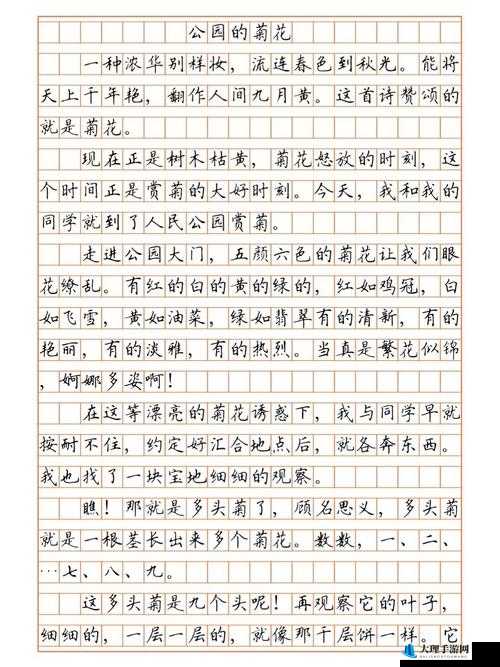 公园的菊花
一种浓华别样妆，流连春色到秋光。能将
天上千年艳，翻作人间九月黄。这首诗赞颂的
就是菊花。
现在正是树木枯黄，菊花怒放的时刻，这
个时间正是赏菊的大好时刻。今天，我和我的
同学就到了人民公园赏菊。
走进公园大门，五颜六色的菊花让我们眼
花缭乱。有红的白的黄的绿的，红如鸡冠，白
如飞雪，黄如油菜，绿如翡翠有的清新，有的
艳丽，有的淡雅，有的热烈。当真是繁花似锦
，婀娜多姿啊！
在这等漂亮的菊花诱惑下，我与同学早就
按耐不住，约定好汇合地点后，就各奔东西。
我也找了一块宝地细细的观察。
瞧！那就是多头菊了，顾名思义，多头菊
就是一根茎长出来多个菊花。数数，一、二、
…七、八、九。
这多头菊是九个头呢！再观察它的叶子，
细细的，一层一层的，就像那千层饼一样。它
大理手游网